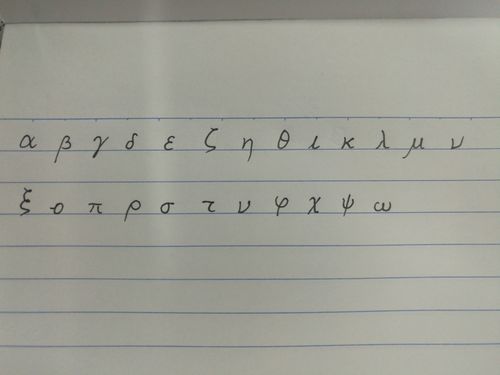 α β γ δ ε ζ η θ ι κ λ μ ν
ξ ο π ρ σ τ υ φ χ ψ ω